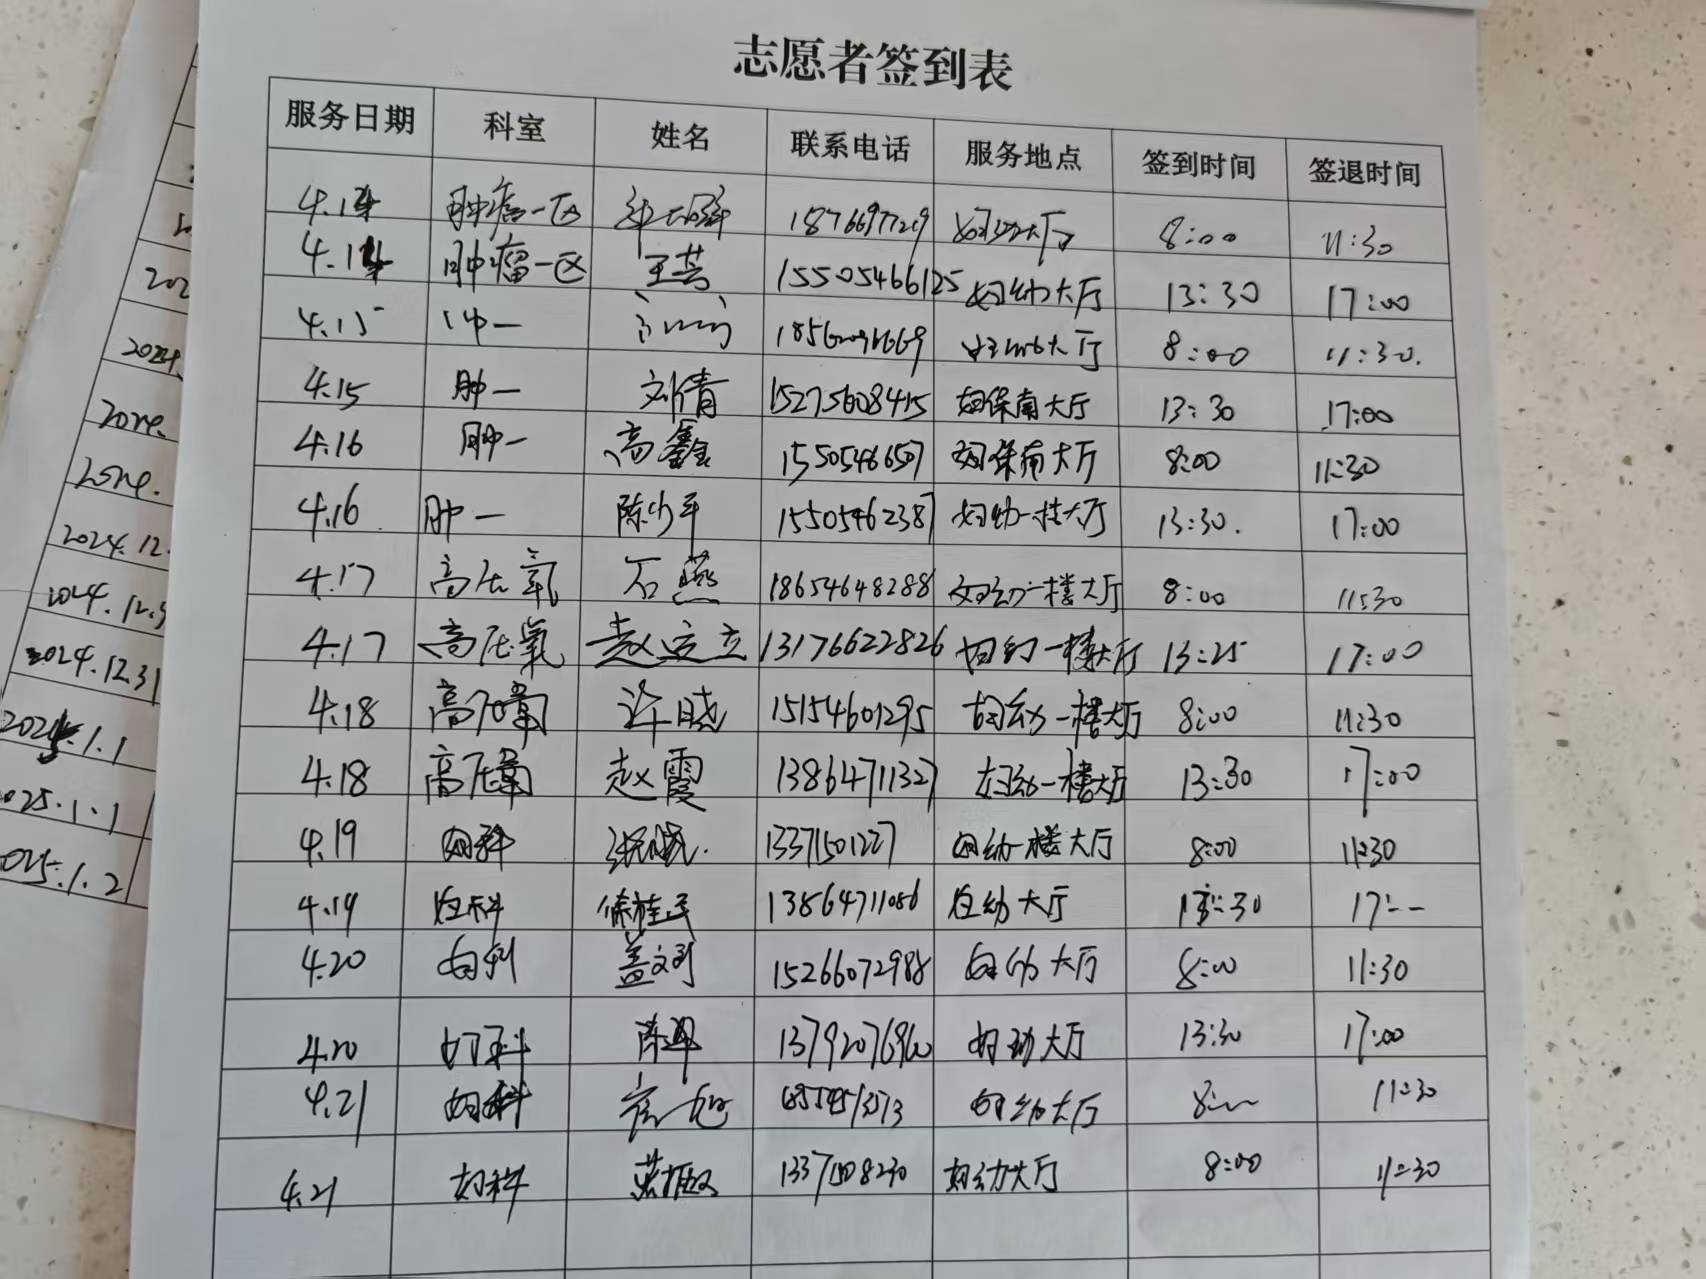 志愿者签到表
服务日期 科室 姓名 联系电话 服务地点 签到时间 签退时间
4.14 肿瘤一区 18766977209 妇幼大厅 8:00 11:30
4.14 肿瘤一区 王芸 15505466125 妇幼大厅 13:30 17:00
4.15 肿一 大厅 8:00 11:30.
4.15 肿一 刘倩 15275608415 妇保南大厅 13:30 17:00
4.16 肿一 高鑫 15505466507 妇保南大厅 8:00 11:30
4.16 肿一 陈少平 15505462387 妇幼一楼大厅 13:30. 17:00
4.17 高压氧 石燕 18654648288 妇幼一楼大厅 8:00 11:30
4.17 高压氧 赵运立 13176622826 妇幼一楼大厅 13:25 17:00
4.18 高压氧 许晓 15154601295 妇幼一楼大厅 8:00 11:30
4.18 高压氧 赵霞 13864711327 妇幼一楼大厅 13:30 17:00
4.19 妇科 13371501227 妇幼一楼大厅 8:00 11:30
4.19 妇科 徐桂民 13864711086 妇幼大厅 13:30 17:--
4.20 妇科 盖文 15266072988 妇幼大厅 8:00 11:30
4.20 妇科 陈翠 妇幼大厅 13:30 17:00
4.21 妇科 妇幼大厅 11:30
4.21 妇科 13371508230 妇幼大厅 8:00 11:30
2024.12.
2024.12.3
2024.12.31
2025.1.1
025.1.1
025.1.2